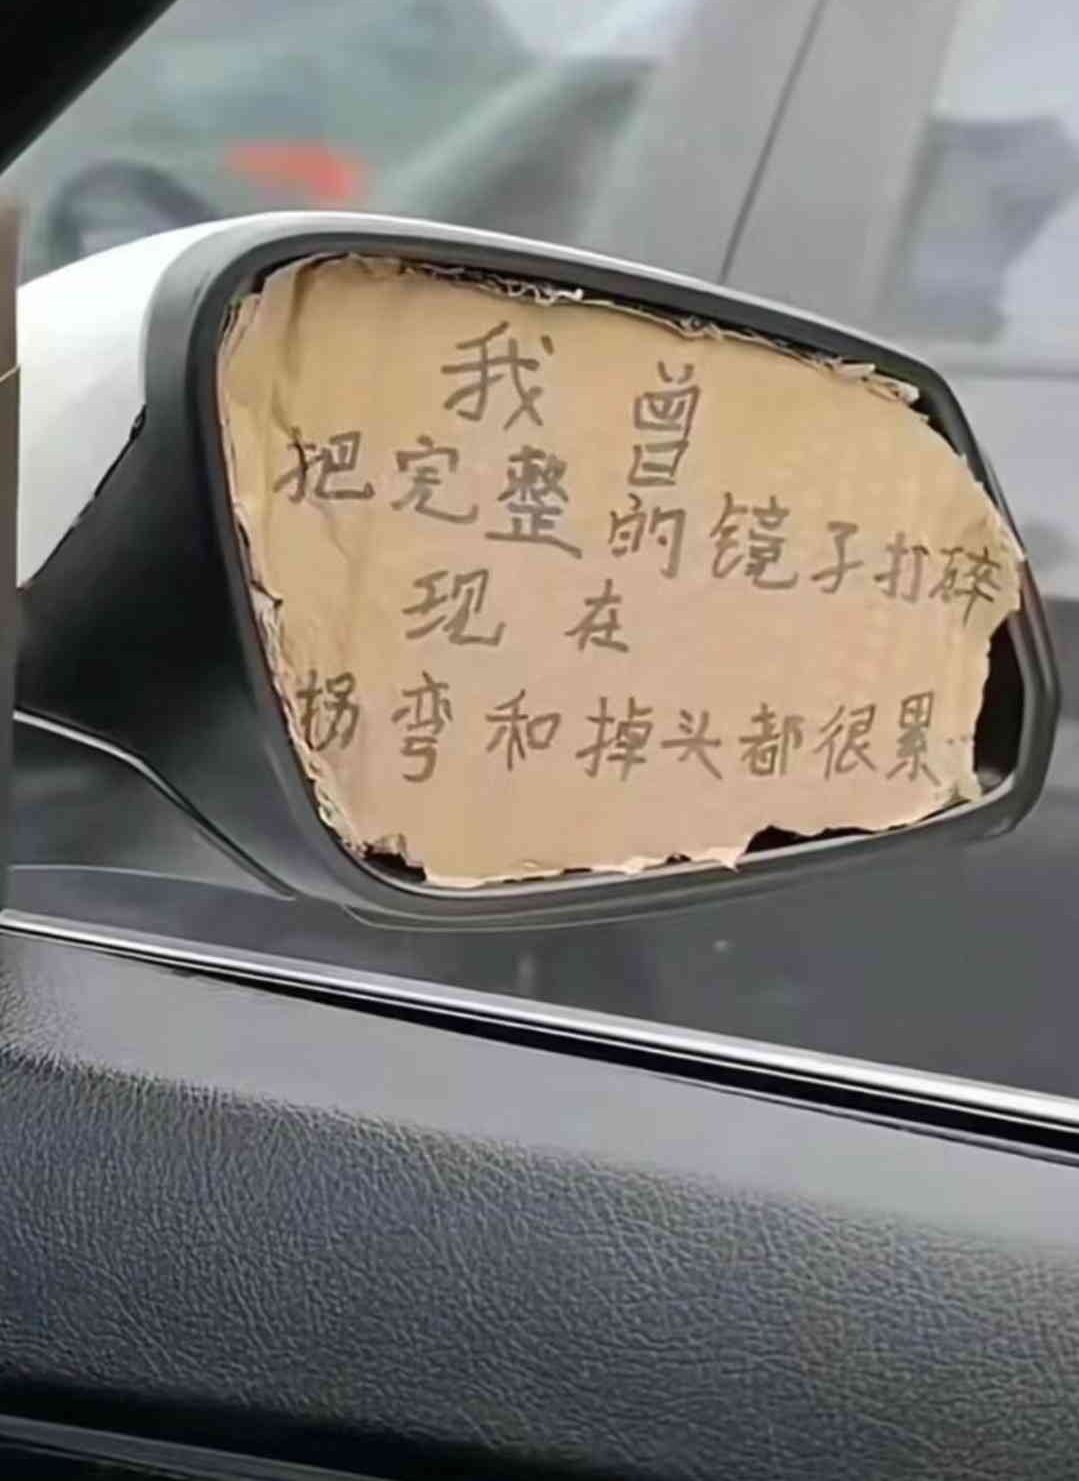 我曾
把完整的镜子打碎
现在
拐弯和掉头都很累…